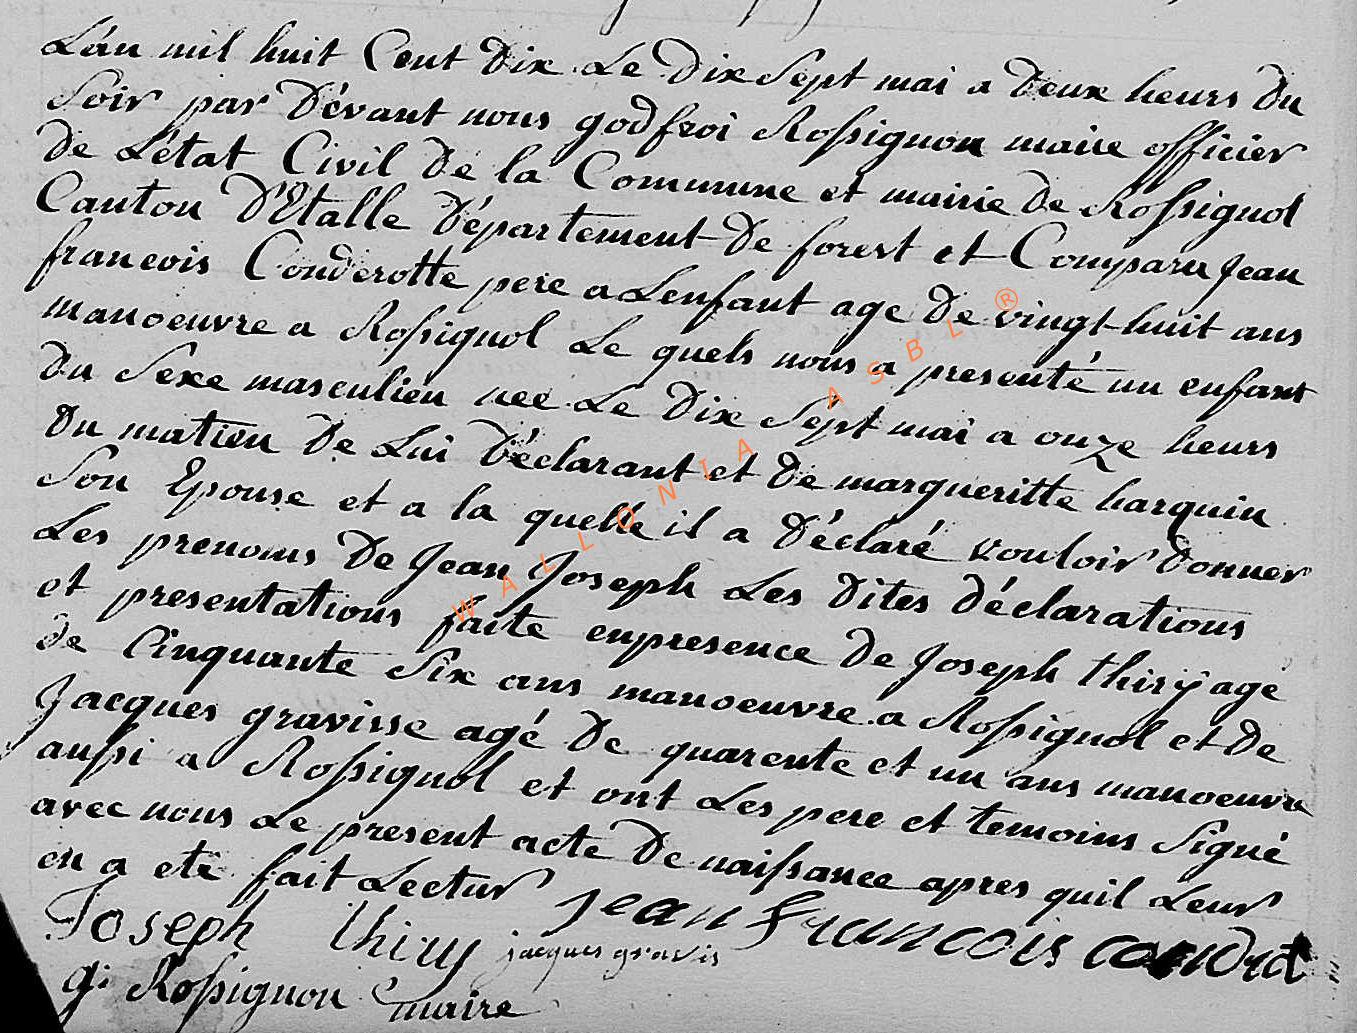 L'an mil huit Cent Dix Le Dix Sept mai a Deux heurs Du
Soir par Dévant nous godfroi Rossignon maire officier
De L'état Civil De la Commune et mairie De Rossignol
Canton D'Etalle Département De forest et Comparu Jean
francois Conderotte pere a Lenfant age De vingt-huit ans
manoeuvre a Rossignol Le quels nous a presenté un enfant
Du Sexe masculien nee Le Dix Sept mai a onze heurs
Du matien De Lui Déclarant et De margueritte harquin
Son Epouse et a la quelle il a Déclaré vouloir Donner
Les prenoms De Jean Joseph Les Dites Déclarations
et presentations faite enpresence De Joseph thiry age
de Cinquante Six ans manoeuvre a Rossignol et De
Jacques gravisse agé De quarente et un ans manoeuvre
aussi a Rossignol et ont Les pere et temoins Signé
avec nous Le present acte De naissance apres quil Leur
en a eté fait Lectur Jean francois
Joseph thiry jacques gravis
g. Rossignon maire
WALLONIA ASBL ®